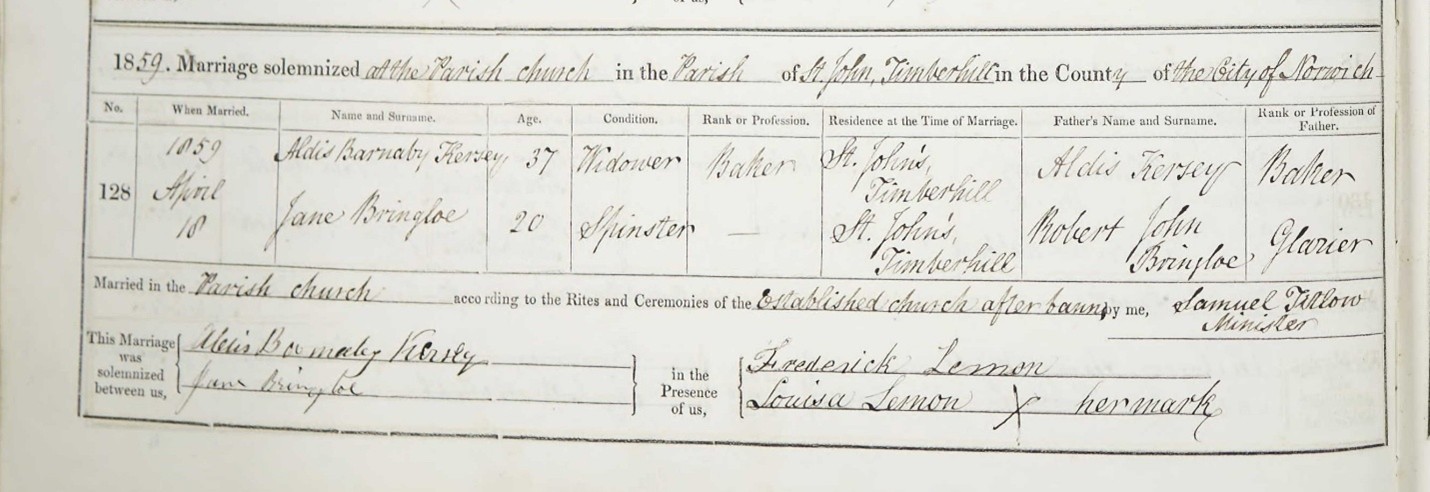 1859. Marriage solemnized at the Parish church in the Parish of St. John, Timberhill in the County of the City of Norwich
No. When Married. Name and Surname. Age. Condition. Rank or Profession. Residence at the Time of Marriage. Father's Name and Surname. Rank or Profession of Father.
128 1859 April 18
Aldis Barnaby Kersey 37 Widower Baker St. John's, Timberhill Aldis Kersey Baker
Jane Bringloe 20 Spinster — St. John's, Timberhill Robert John Bringloe Glazier
Married in the Parish church according to the Rites and Ceremonies of the Established church after banns by me, Samuel Titlow Minister
This Marriage was solemnized between us, Aldis Barnaby Kersey
Jane Bringloe
in the Presence of us, Frederick Lemon
Louisa Lemon X her mark